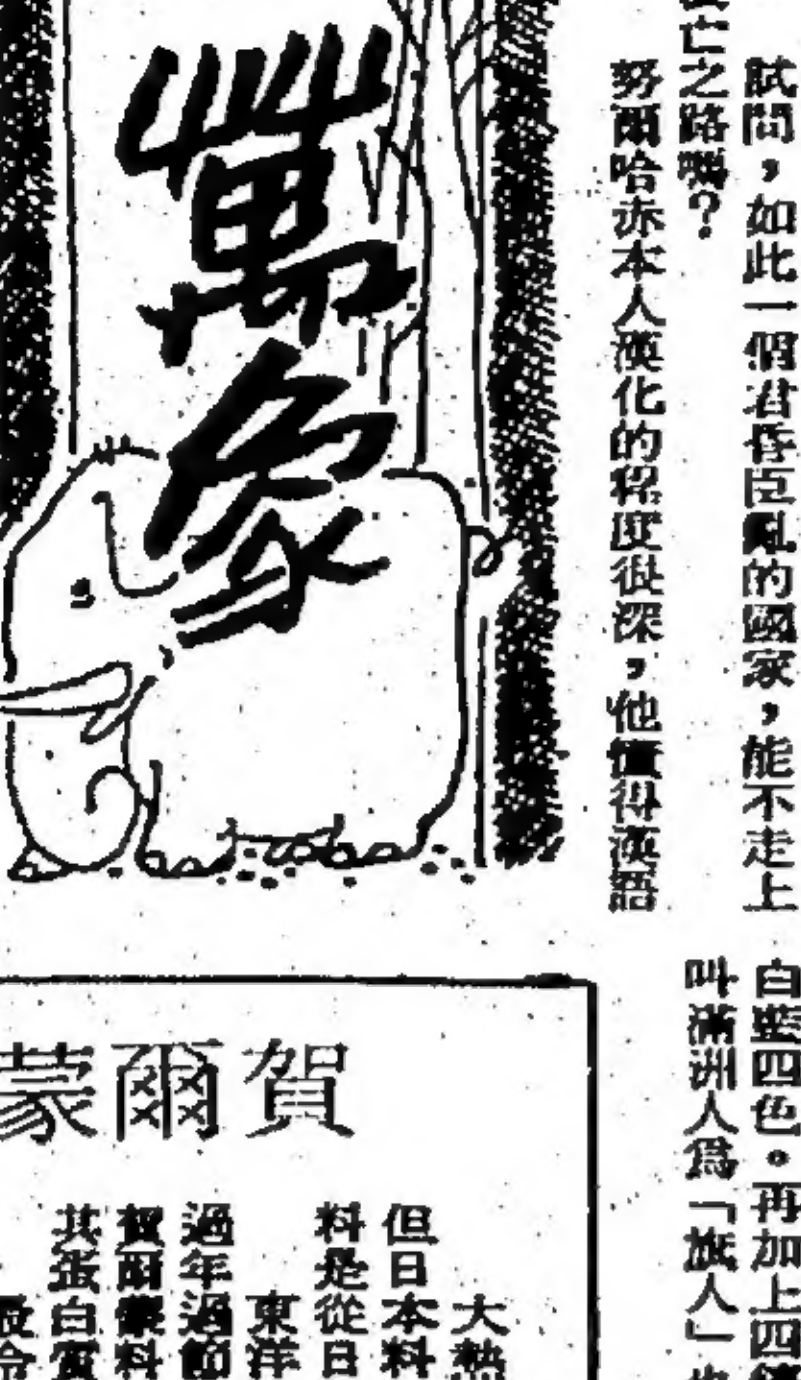 試問,如此一個君昏臣亂的國家,能不走上
亡之路嗎?
努爾哈赤本人漢化的程度很深,他懂得漢語
萬象
白藍四色。再加上四鑲
叫滿洲人爲「旗人」也
賀爾蒙
大熱
但日本料
料是從日
東洋
過年過節
賀爾蒙料
其蛋白質